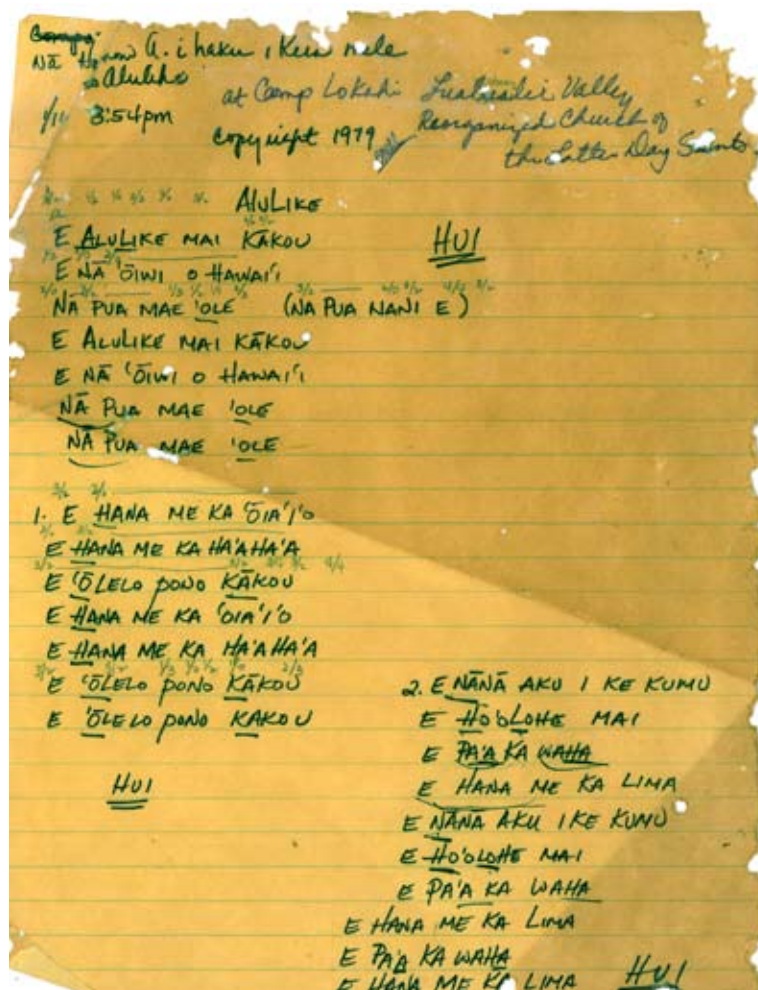 NĀ A. i haku i keia mele
Alulike
1/11 3:54pm
at Camp Lokahi Lualualei Valley
Reorganized Church of
the Latter Day Saints.
Copyright 1979
ALULIKE
HUI
E ALULIKE MAI KĀKOU
E NĀ ʻŌIWI O HAWAIʻI
NĀ PUA MAE ʻOLE (NA PUA NANI E)
E ALULIKE MAI KĀKOU
E NĀ ʻŌIWI O HAWAIʻI
NĀ PUA MAE ʻOLE
NĀ PUA MAE ʻOLE
1. E HANA ME KA ʻŌIAʻIʻO
E HANA ME KA HAʻAHAʻA
E ʻŌLELO PONO KĀKOU
E HANA ME KA ʻOIAʻIʻO
E HANA ME KA HAʻAHAʻA
E ʻŌLELO PONO KĀKOU
E ʻŌLELO PONO KAKOU
HUI
2. E NĀNĀ AKU I KE KUMU
E HOʻOLOHE MAI
E PAʻA KA WAHA
E HANA ME KA LIMA
E NĀNĀ AKU I KE KUMU
E HOʻOLOHE MAI
E PAʻA KA WAHA
E HANA ME KA LIMA
E PAʻA KA WAHA
E HANA ME KA LIMA HUI